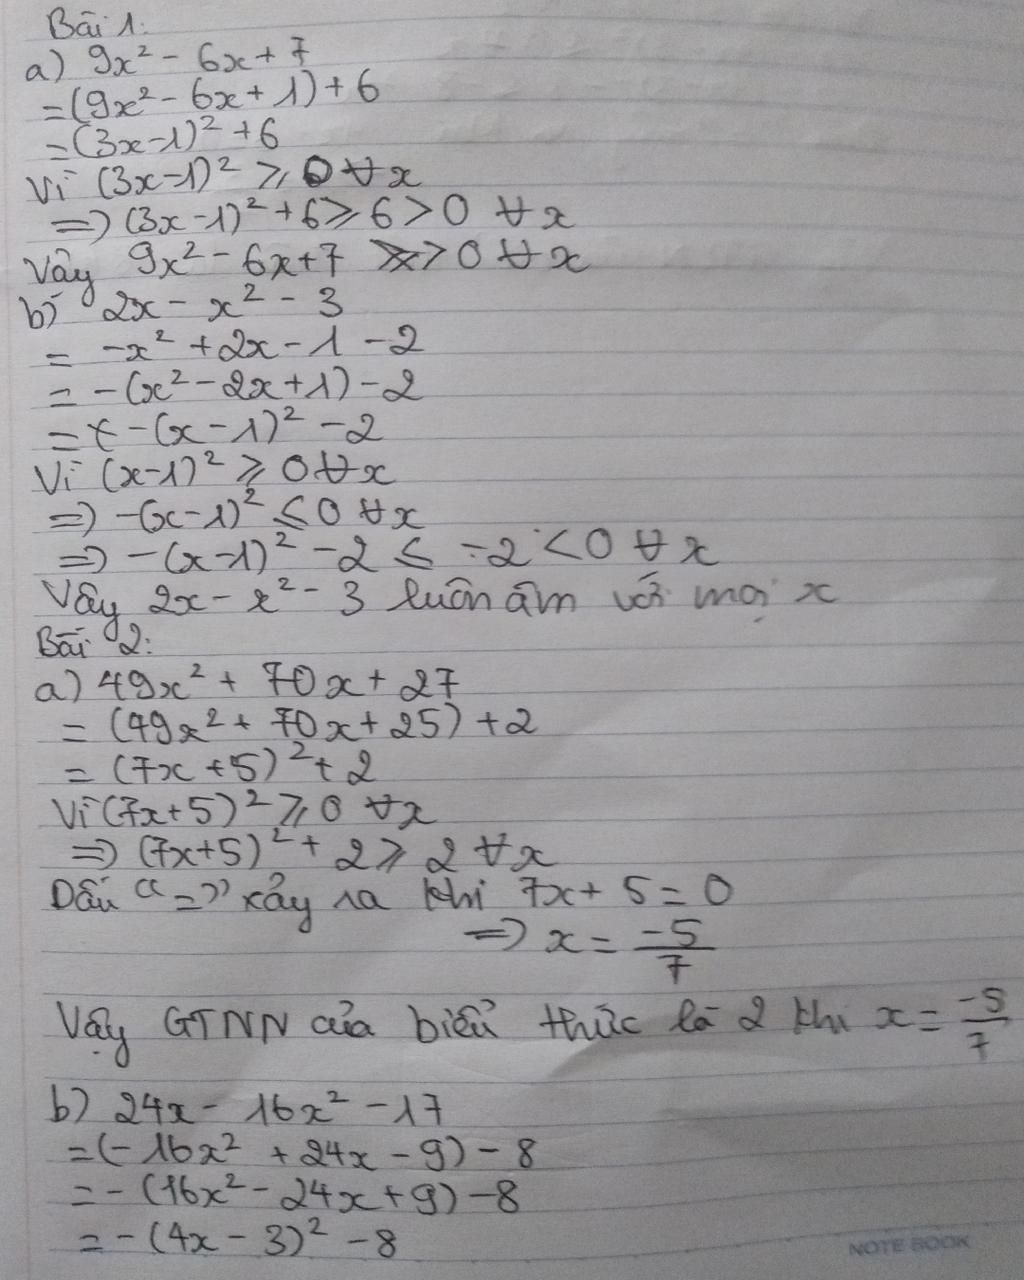 Bài 1:
a) 9x² - 6x + 7
= (9x² - 6x + 1) + 6
= (3x - 1)² + 6
Vì (3x - 1)² ⩾ 0 ∀x
=> (3x - 1)² + 6 ⩾ 6 > 0 ∀x
Vậy 9x² - 6x + 7 > 0 ∀x
b) 2x - x² - 3
= -x² + 2x - 1 - 2
= -(x² - 2x + 1) - 2
= -(x - 1)² - 2
Vì (x - 1)² ⩾ 0 ∀x
=> -(x - 1)² ⩽ 0 ∀x
=> -(x - 1)² - 2 ⩽ -2 < 0 ∀x
Vậy 2x - x² - 3 luôn âm với mọi x
Bài 2:
a) 49x² + 70x + 27
= (49x² + 70x + 25) + 2
= (7x + 5)² + 2
Vì (7x + 5)² ⩾ 0 ∀x
=> (7x + 5)² + 2 ⩾ 2 ∀x
Dấu "=" xảy ra khi 7x + 5 = 0
=> x = -5/7
Vậy GTNN của biểu thức là 2 khi x = -5/7
b) 24x - 16x² - 17
= (-16x² + 24x - 9) - 8
= -(16x² - 24x + 9) - 8
= -(4x - 3)² - 8
NOTE BOOK